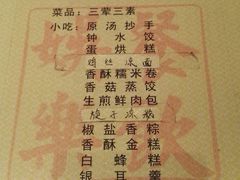 菜品：三荤三素
小吃：原汤抄手
钟水饺
蛋烘糕
鸡丝凉面
香酥糯米卷
香菇蒸饺
生煎鲜肉包
椒盐香粽
香酥金糕
白蜂糕
银耳羹